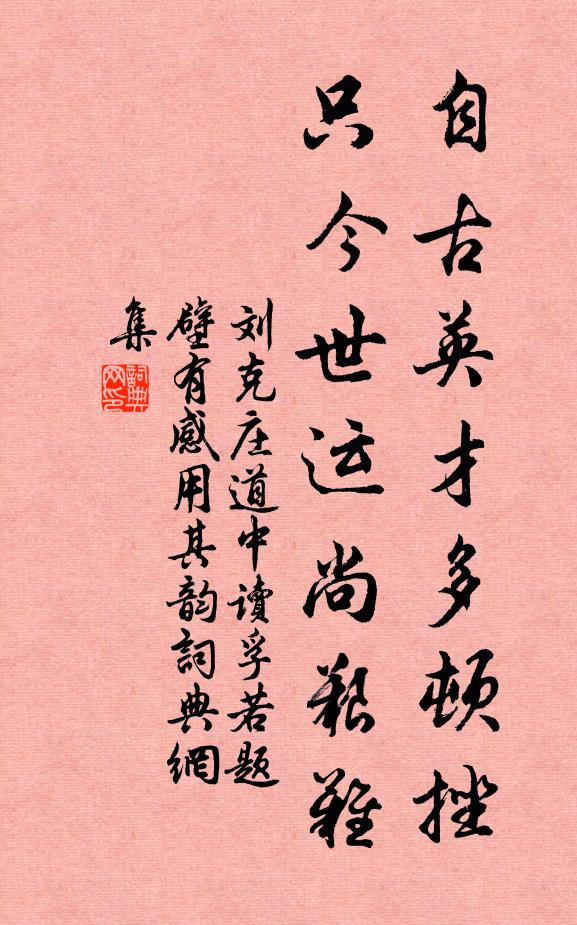 自古英才多顿挫
只今世运尚艰难
刘克庄道中读孚若题
壁有感用其韵词典网
集
词典
网印